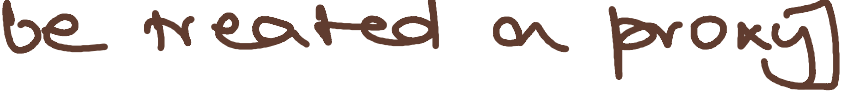 be treated on proxy]